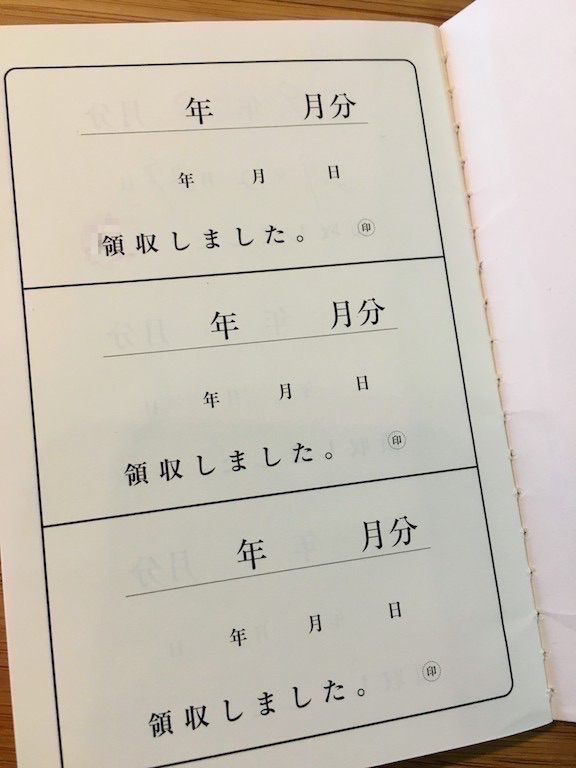 年 月分
年 月 日
領収しました。 ㊞
年 月分
年 月 日
領収しました。 ㊞
年 月分
年 月 日
領収しました。 ㊞